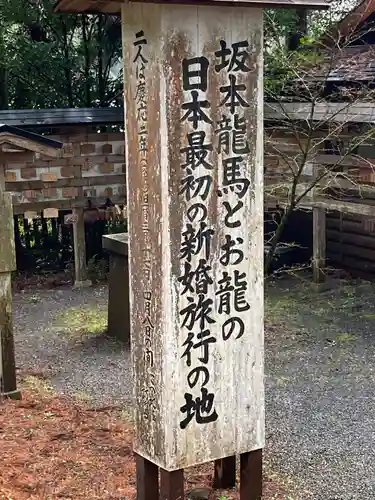 坂本龍馬とお龍の
日本最初の新婚旅行の地
二人は慶応二年